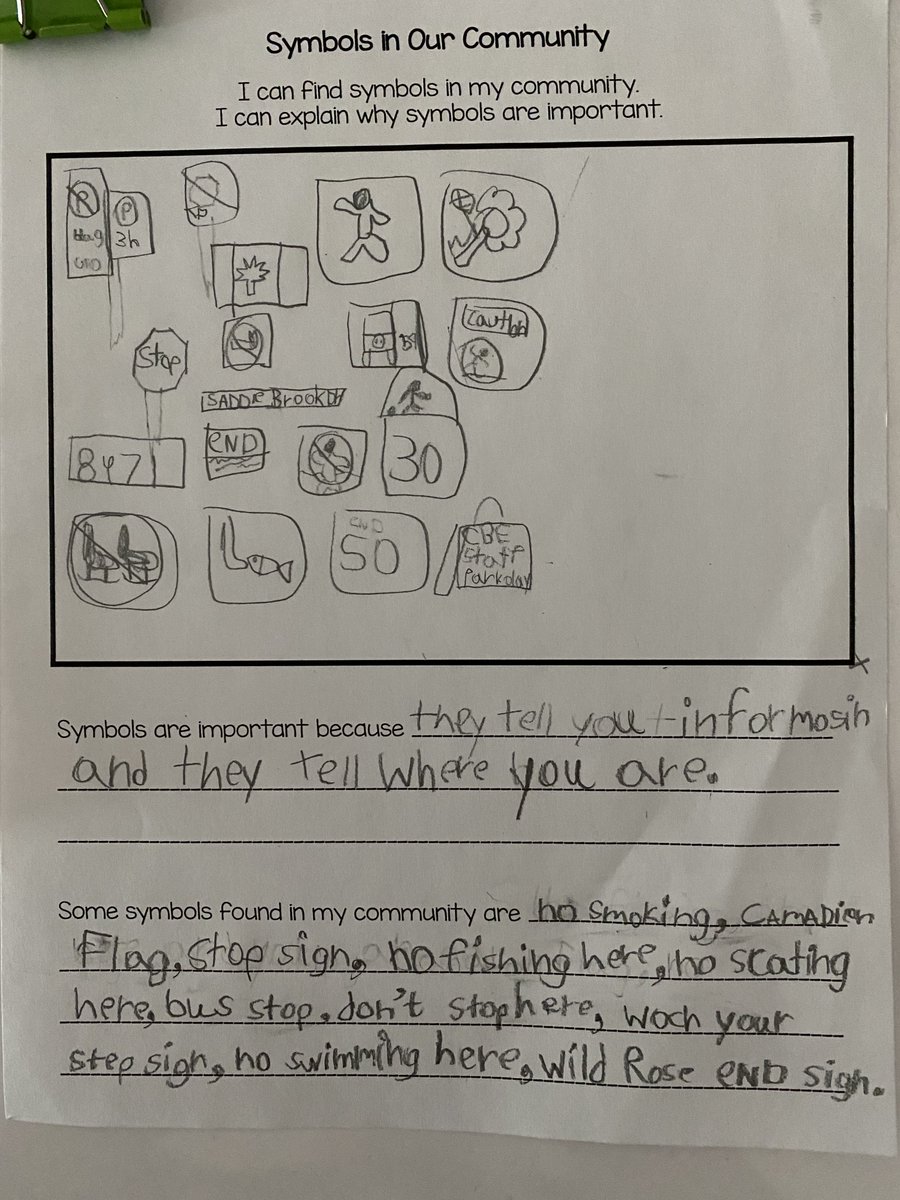 Symbols in Our Community
I can find symbols in my community.
I can explain why symbols are important.
R
P
3h
Stop
CautIoh
SADDle Brook Dr
8471
eND
30
END
50
CBE
Staff
Parkday
Symbols are important because they tell you informosin
and they tell where you are.
Some symbols found in my community are no smoking, CANADien
Flag, stop sign, no fishing here, no scating
here, bus stop, don't stop here, woch your
step sign, no swimming here, wild Rose eND sign.